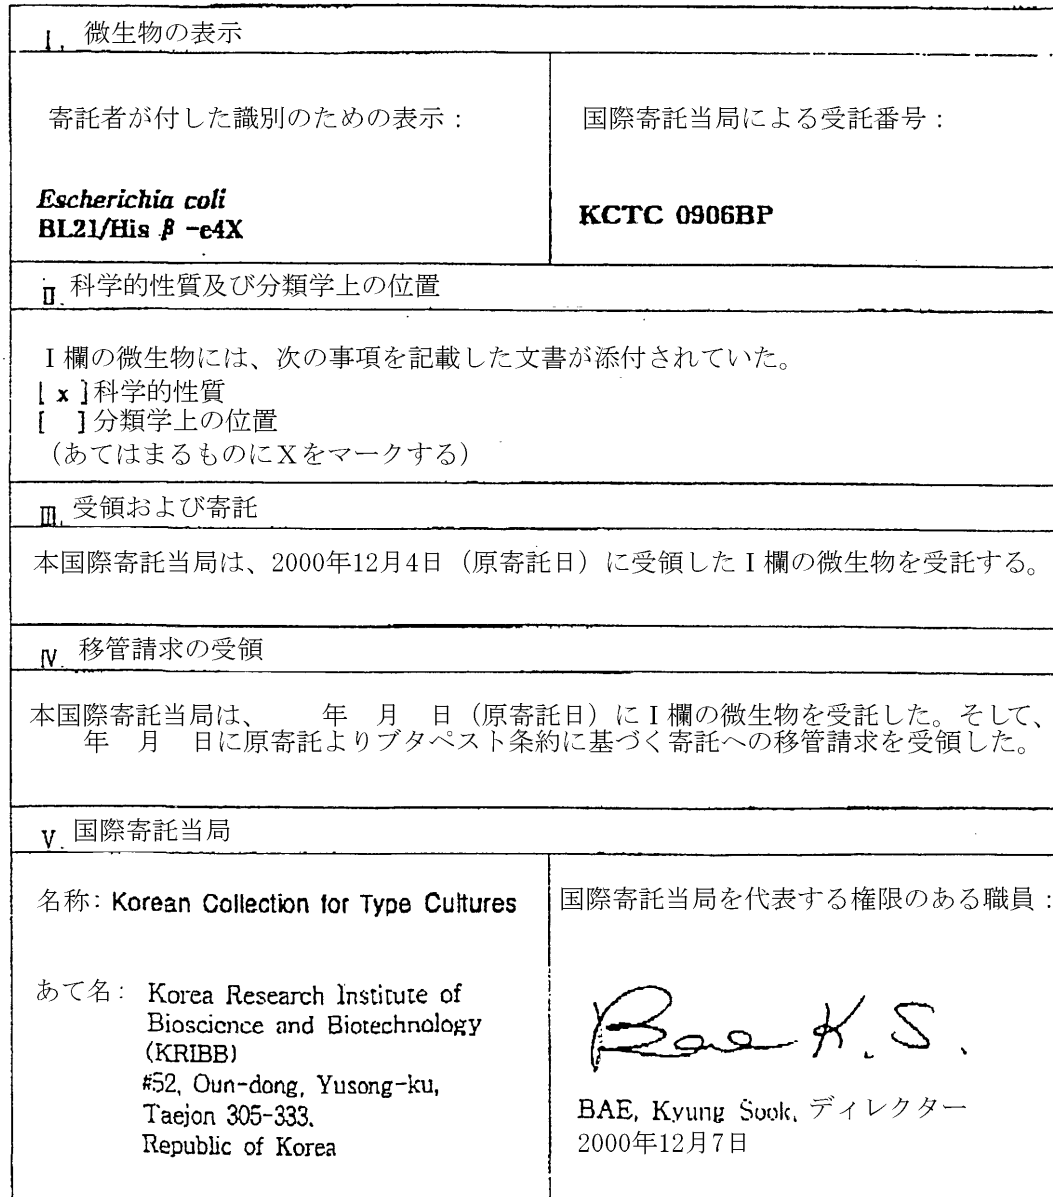 I. 微生物の表示
寄託者が付した識別のための表示：
Escherichia coli
BL21/His β -e4X
国際寄託当局による受託番号：
KCTC 0906BP
II. 科学的性質及び分類学上の位置
I欄の微生物には、次の事項を記載した文書が添付されていた。
[ x ]科学的性質
[ ]分類学上の位置
(あてはまるものにXをマークする)
III. 受領および寄託
本国際寄託当局は、2000年12月4日（原寄託日）に受領したI欄の微生物を受託する。
IV. 移管請求の受領
本国際寄託当局は、　　年　月　日（原寄託日）にI欄の微生物を受託した。そして、
年　月　日に原寄託よりブタペスト条約に基づく寄託への移管請求を受領した。
V. 国際寄託当局
名称：Korean Collection for Type Cultures
あて名：Korea Research Institute of
Bioscience and Biotechnology
(KRIBB)
#52, Oun-dong, Yusong-ku,
Taejon 305-333,
Republic of Korea
国際寄託当局を代表する権限のある職員：
Bae K. S.
BAE, Kyung Sook, ディレクター
2000年12月7日